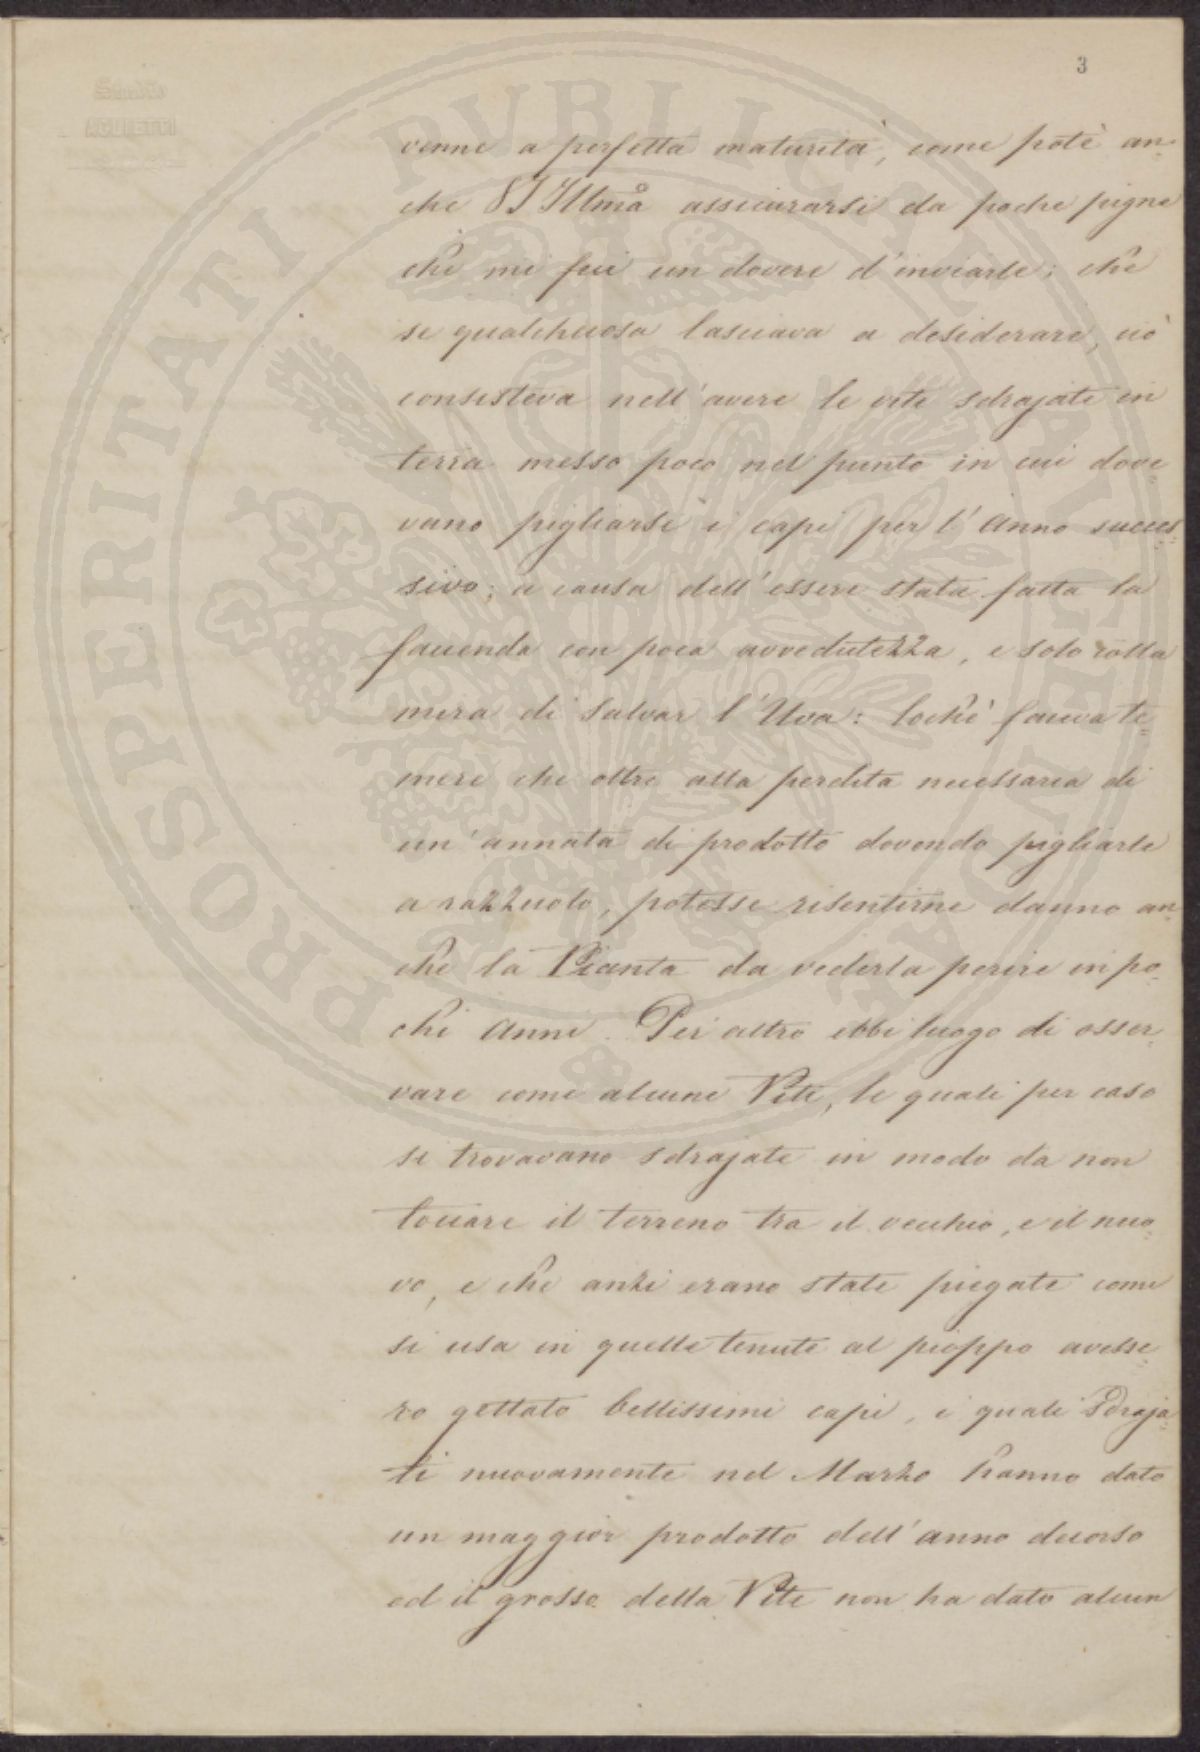 3
venne a perfetta maturità, come potè an-
che VS Illmâ assicurarsi da poche pigne
che mi feci un dovere d'inviarle; che
se qualchecosa lasciava a desiderare, ciò
consisteva nell'avere le viti sdrajate in
terra messo poco nel punto in cui dove-
vano pigliarsi i capi per l'anno succes-
sivo; a causa dell'essere stata fatta la
faccenda con poca avvedutezza, e solo colla
mira di salvar l'Uva: lochè faceva te-
mere che oltre alla perdita necessaria di
un'annata di prodotto dovendo pigliarle
a razzuolo, potesse risentirne danno an-
che la Pianta da vederla perire in po-
chi anni. Per altro ebbi luogo di osser-
vare come alcune Viti, le quali per caso
si trovavano sdrajate in modo da non
toccare il terreno tra il vecchio, e il nuo-
vo, e che anzi erano state piegate come
si usa in quelle tenute al pioppo avesse-
ro gettato bellissimi capi, i quali sdraja-
ti nuovamente nel Marzo hanno dato
un maggior prodotto dell'anno decorso
ed il grosso della Vite non ha dato alcun
Studio
AGLIETTI
PROSPERITATI PUBLICAE AUGENDAE